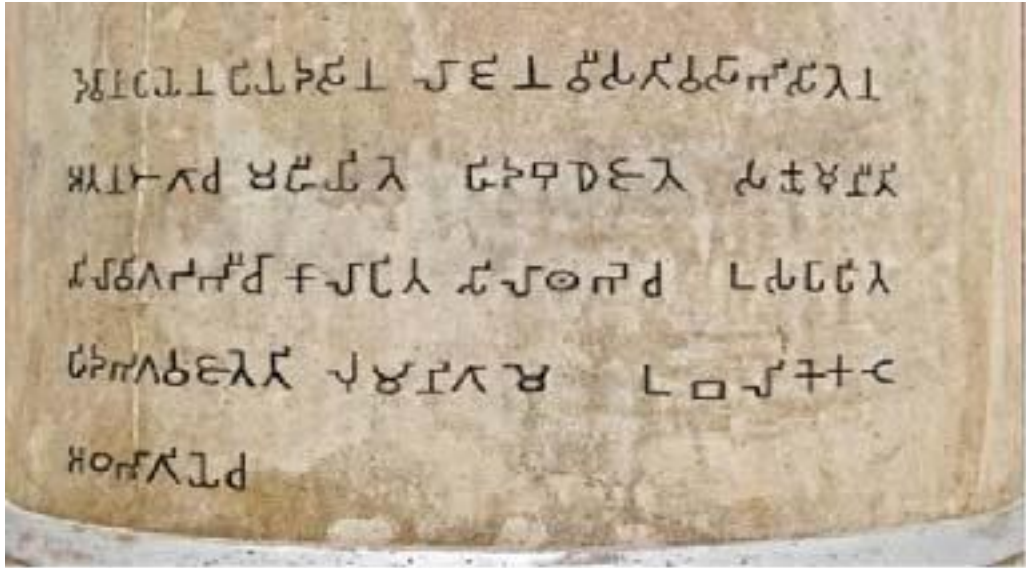 𑀤𑁂𑀯𑀸𑀦𑀧𑀺𑀬𑁂𑀦 𑀧𑀺𑀬𑀤𑀲𑀺𑀦 𑀮𑀸𑀚𑀺𑀦 𑀯𑀻𑀲𑀢𑀺𑀯𑀲𑀸𑀪𑀺𑀲𑀺𑀢𑁂𑀦
𑀅𑀢𑀦𑀆𑀕𑀸𑀘 𑀫𑀳𑀻𑀬𑀺𑀢𑁂 𑀳𑀺𑀤𑀩𑀼𑀥𑁂𑀚𑀸𑀢𑁂 𑀲𑀓𑁆𑀬𑀫𑀼𑀦𑀻𑀢𑀺
𑀲𑀺𑀮𑀸𑀯𑀺𑀕𑀟𑀪𑀻𑀘𑀸 𑀓𑀸𑀮𑀸𑀧𑀺𑀢 𑀲𑀺𑀮𑀸𑀣𑀪𑁂𑀘 𑀉𑀲𑀧𑀸𑀧𑀺𑀢𑁂
𑀳𑀺𑀤𑀪𑀕𑀯𑀁𑀚𑀸𑀢𑁂𑀢𑀺 𑀮𑀼𑀁𑀫𑀺𑀦𑀺𑀕𑀸𑀫𑁂 𑀉𑀩𑀮𑀺𑀓𑁂𑀓𑀝𑁂
𑀅𑀞𑀪𑀸𑀕𑀺𑀬𑁂𑀘